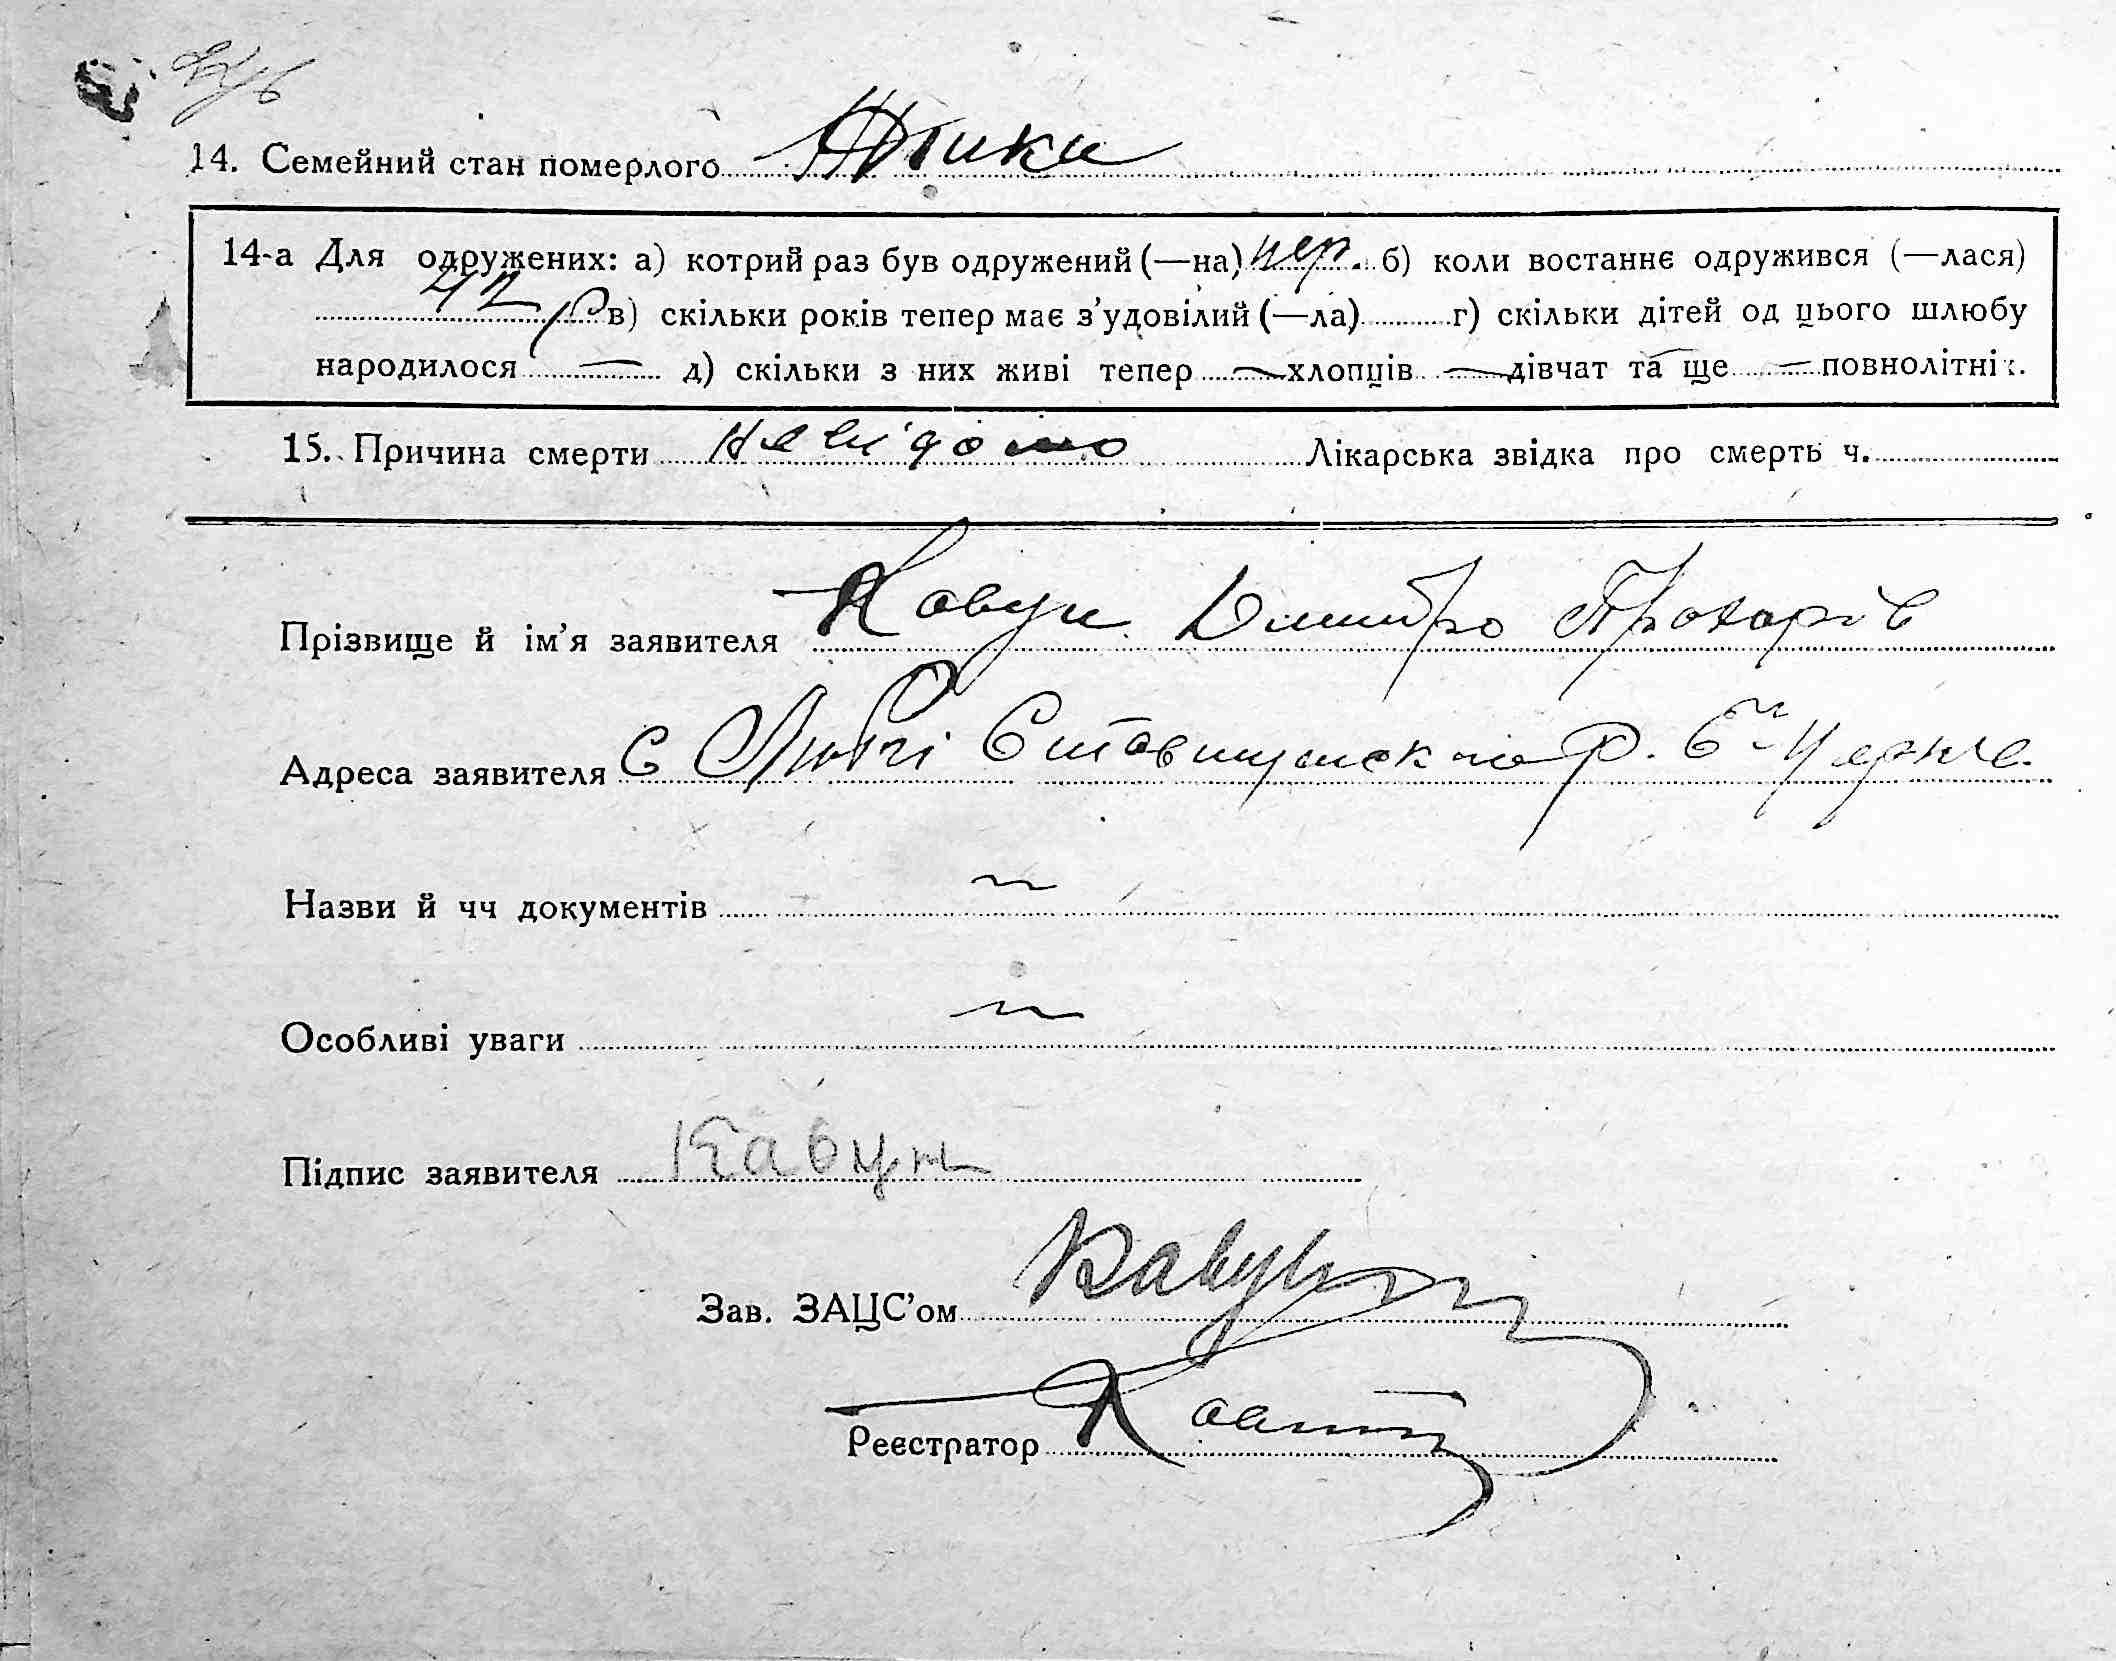 14. Семейний стан померлого
14-а Для одружених: а) котрий раз був одружений (—на) пер. б) коли востаннє одружився (—лася)
42 р в) скільки років тепер має з’удовілий (—ла) г) скільки дітей од цього шлюбу
народилося — д) скільки з них живі тепер — хлопців — дівчат та ще — повнолітніх.
15. Причина смерти невідомо Лікарська звідка про смерть ч.
Прізвище й ім’я заявителя Кавун Дмитро Прохорів
Адреса заявителя С Любчі Ставищанського р.
Назви й чч документів
Особливі уваги
Підпис заявителя Кавун
Зав. ЗАЦС’ом Кавун
Реєстратор